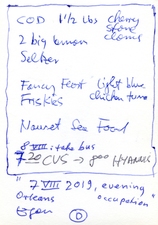 COD 1 1/2 lbs cherry
stone
clams
2 big lemon
Seltzer
Fancy Feast light blue
Friskies chicken tuna
Sea Food
8 VIII: take bus
7 20 CVS → 800 HYANNIS
"7 VIII 2019, evening"
Orleans occupation
D